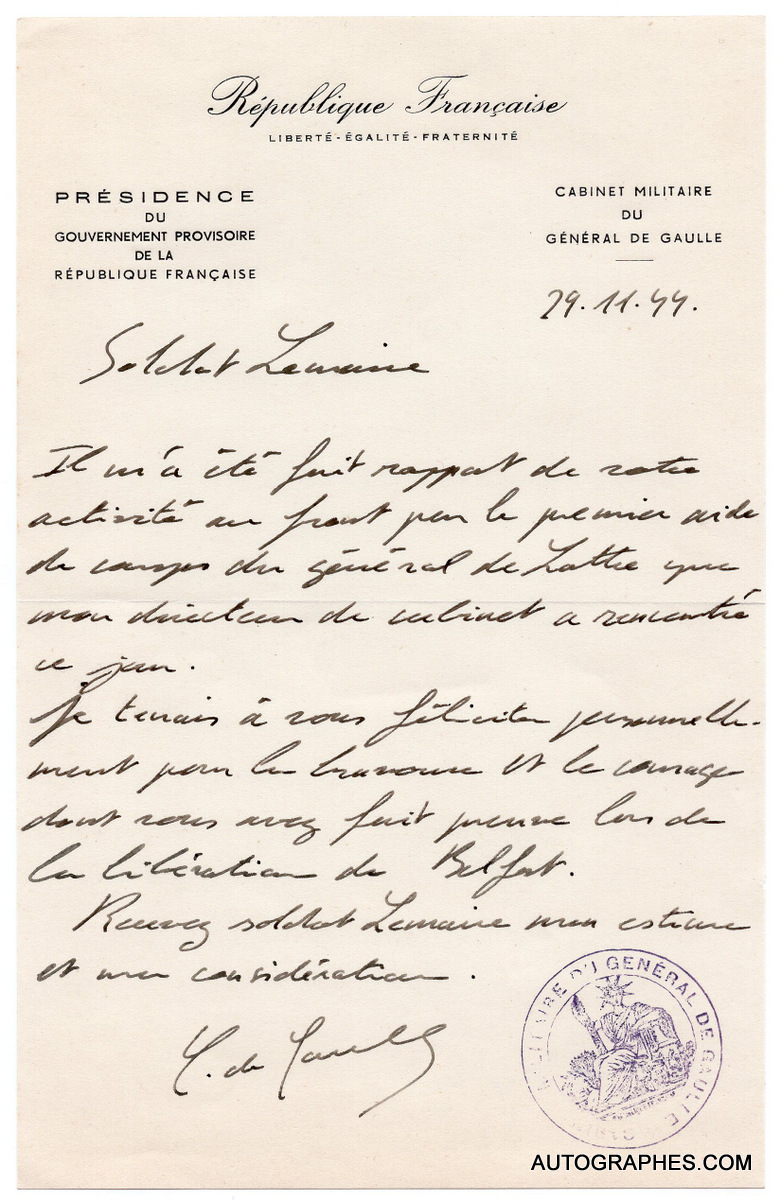 République Française
LIBERTÉ - ÉGALITÉ - FRATERNITÉ
PRÉSIDENCE
DU
GOUVERNEMENT PROVISOIRE
DE LA
RÉPUBLIQUE FRANÇAISE
CABINET MILITAIRE
DU
GÉNÉRAL DE GAULLE
29.11.44.
Soldat Lemaire
Il m'a été fait rapport de votre
activité au front par le premier aide
de camps du général de Lattre que
mon directeur de cabinet a rencontré
ce jour.
Je tenais à vous féliciter personnelle-
ment pour la bravoure et le courage
dont vous avez fait preuve lors de
la libération de Belfort.
Recevez soldat Lemaire mon estime
et ma considération.
C. de Gaulle
MILITAIRE DU GÉNÉRAL DE GAULLE
AUTOGRAPHES.COM